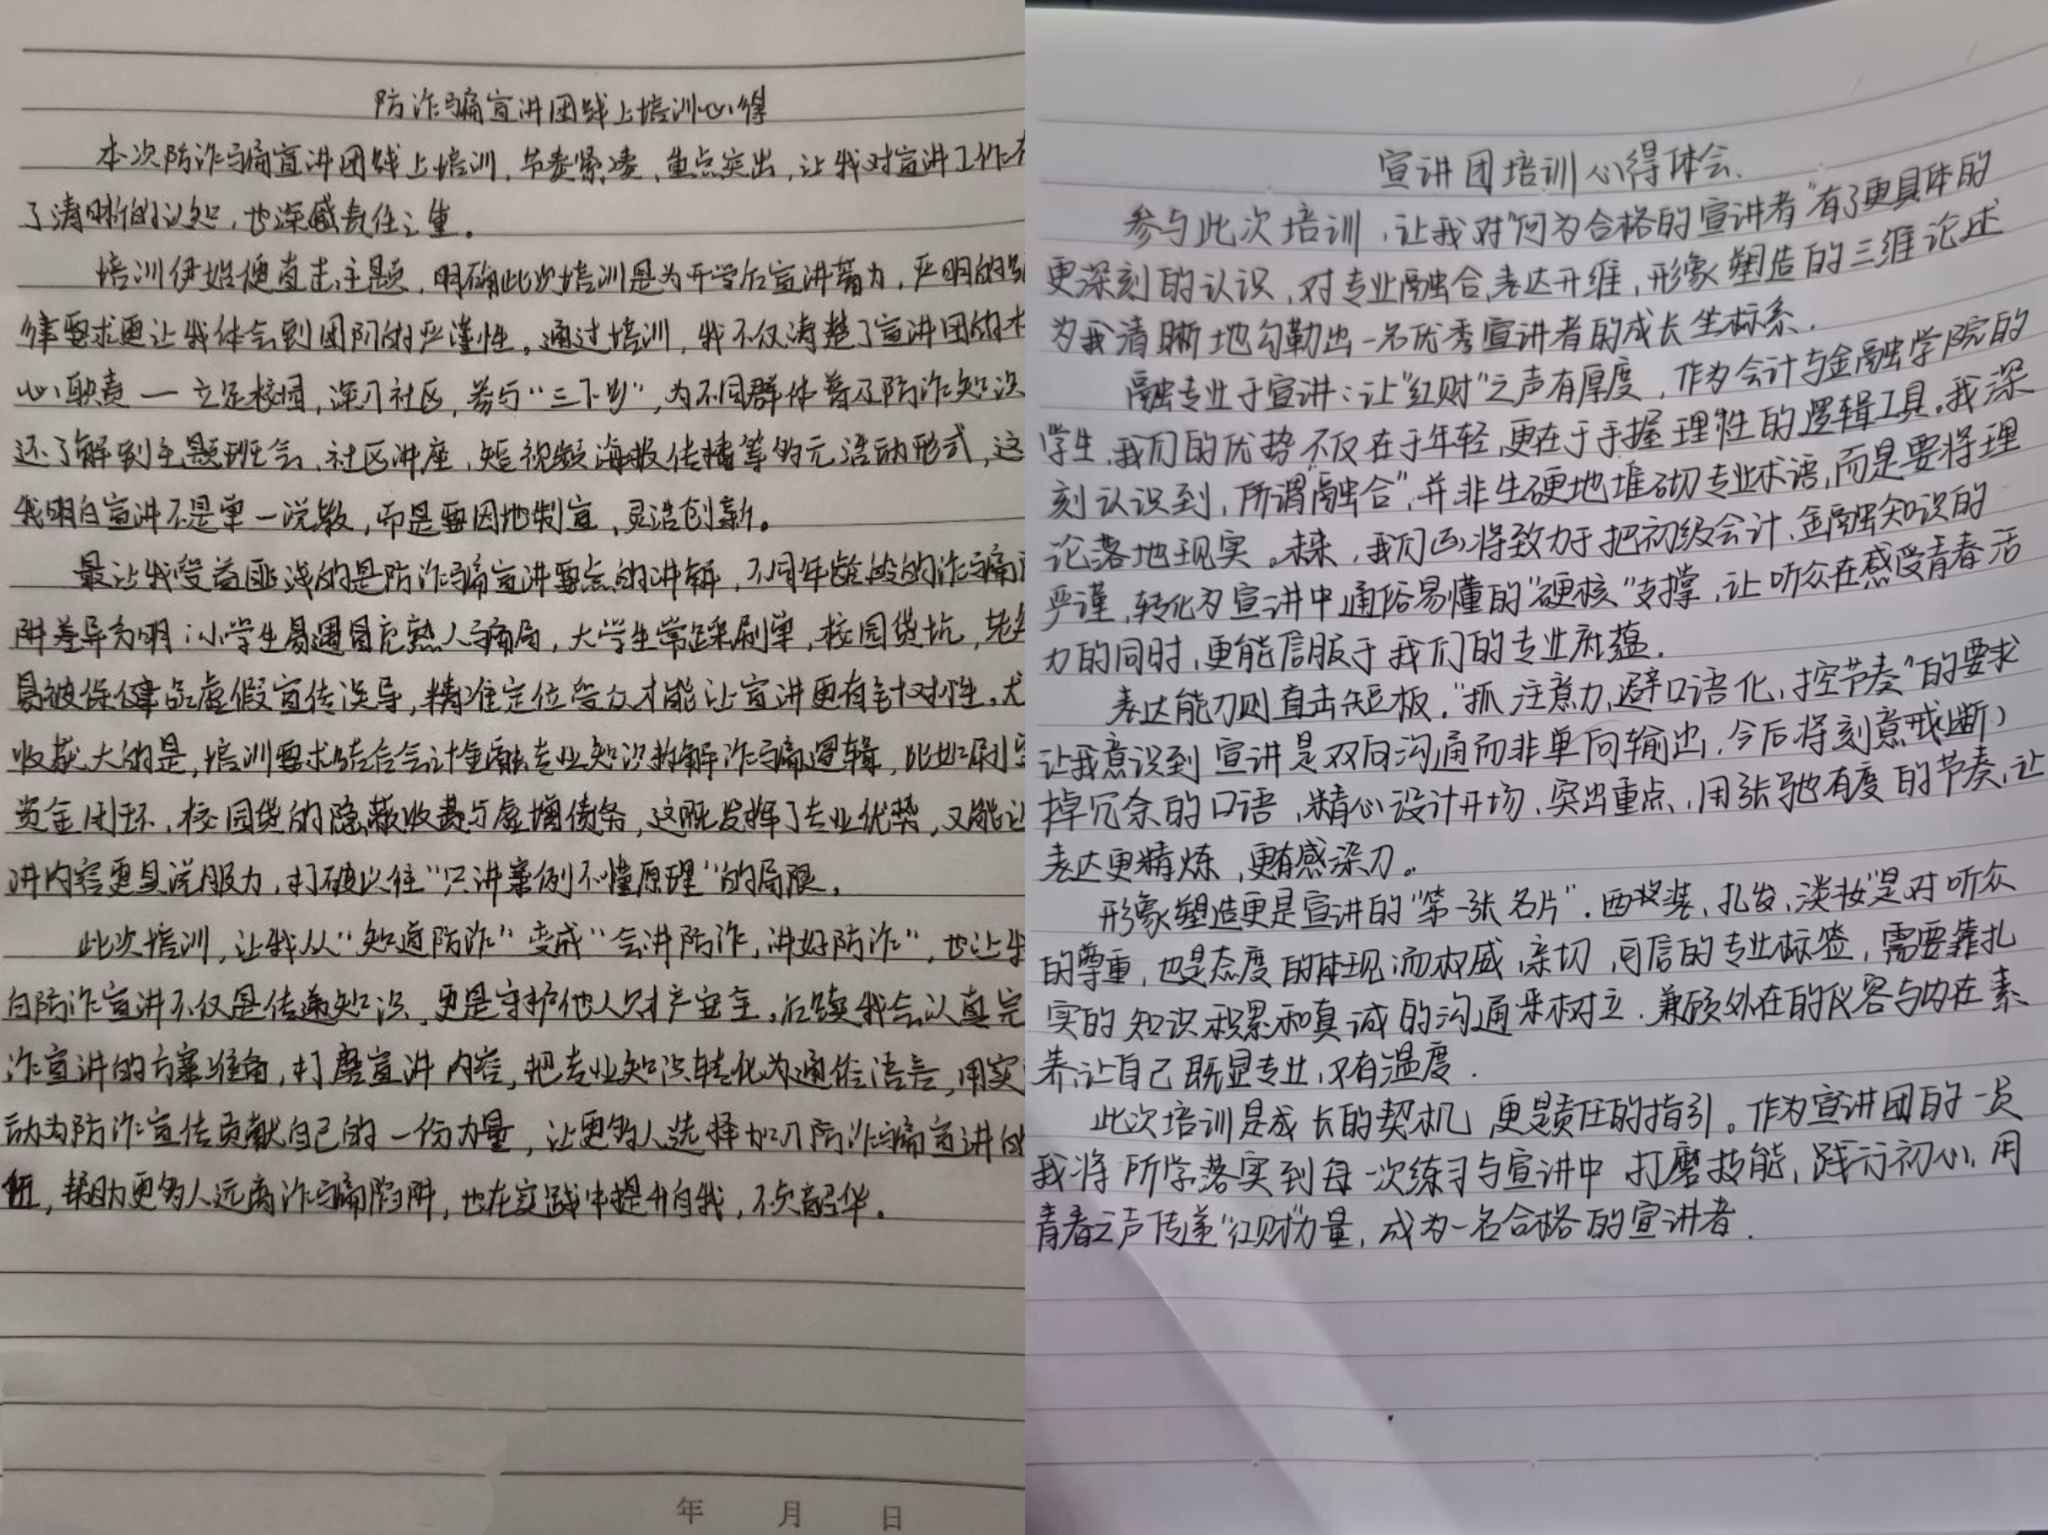 防诈骗宣讲团线上培训心得
本次防诈骗宣讲团线上培训，节奏紧凑、重点突出，让我对宣讲工作有
了清晰的认知，也深感责任之重。
培训伊始便直击主题，明确此次培训是为开学后宣讲蓄力，严明的纪
律要求更让我体会到团队的严谨性。通过培训，我不仅清楚了宣讲团的
心职责—立足校园，深入社区，参与“三下乡”，为不同群体普及防诈知识
还了解到主题班会、社区讲座、短视频海报传播等多元活动形式，这
我明白宣讲不是单一说教，而是要因地制宜，灵活创新。
最让我受益匪浅的是防诈骗宣讲要点的讲解，不同年龄段的诈骗
阱差异分明：小学生易遇冒充熟人骗局，大学生常踩刷单，校园贷坑，老
易被保健品虚假宣传误导，精准定位受众才能让宣讲更有针对性。尤
收获大的是，培训要求结合会计金融专业知识拆解诈骗逻辑，比如刷
资金闭环、校园贷的隐蔽收费与虚增债务，这既发挥了专业优势，又能让
讲内容更具说服力，打破以往“只讲案例不懂原理”的局限。
此次培训，让我从“知道防诈”变成“会讲防诈，讲好防诈”，也让我
白防诈宣讲不仅是传递知识，更是守护他人财产安全。后续我会认真完
诈宣讲的方案准备，打磨宣讲内容，把专业知识转化为通俗语言，用实
动为防诈宣传贡献自己的一份力量，让更多人选择加入防诈骗宣讲的
伍，帮助更多人远离诈骗陷阱，也在实践中提升自我，不负韶华。
年 月 日
宣讲团培训心得体会.
参与此次培训，让我对“何为合格的宣讲者”有了更具体的
更深刻的认识，对专业融合，表达升维，形象塑造的三维论述
为我清晰地勾勒出一名优秀宣讲者的成长坐标系.
融专业于宣讲：让“红财”之声有厚度，作为会计与金融学院的
学生，我们的优势不仅在于年轻，更在于手握理性的逻辑工具。我深
刻认识到，所谓“融合”，并非生硬地堆砌专业术语，而是要将理
论落地现实。未来，我们必将致力于把初级会计、金融知识的
严谨，转化为宣讲中通俗易懂的“硬核”支撑，让听众在感受青春活
力的同时，更能信服于我们的专业底蕴.
表达能力则直击短板.“抓注意力，避口语化，控节奏”的要求
让我意识到宣讲是双向沟通而非单向输出.今后将刻意戒断
掉冗余的口语，精心设计开场、突出重点，用张弛有度的节奏，让
表达更精炼，更有感染力。
形象塑造更是宣讲的“第一张名片”.西装、扎发、淡妆是对听众
的尊重，也是态度的体现，而权威，亲切，可信的专业标签，需要靠扎
实的知识积累和真诚的沟通来树立.兼顾外在的仪容与内在素
养，让自己既显专业，又有温度.
此次培训是成长的契机，更是责任的指引。作为宣讲团的一员
我将所学落实到每一次练习与宣讲中 打磨技能，践行初心，用
青春之声传递“红财”力量，成为一名合格的宣讲者.